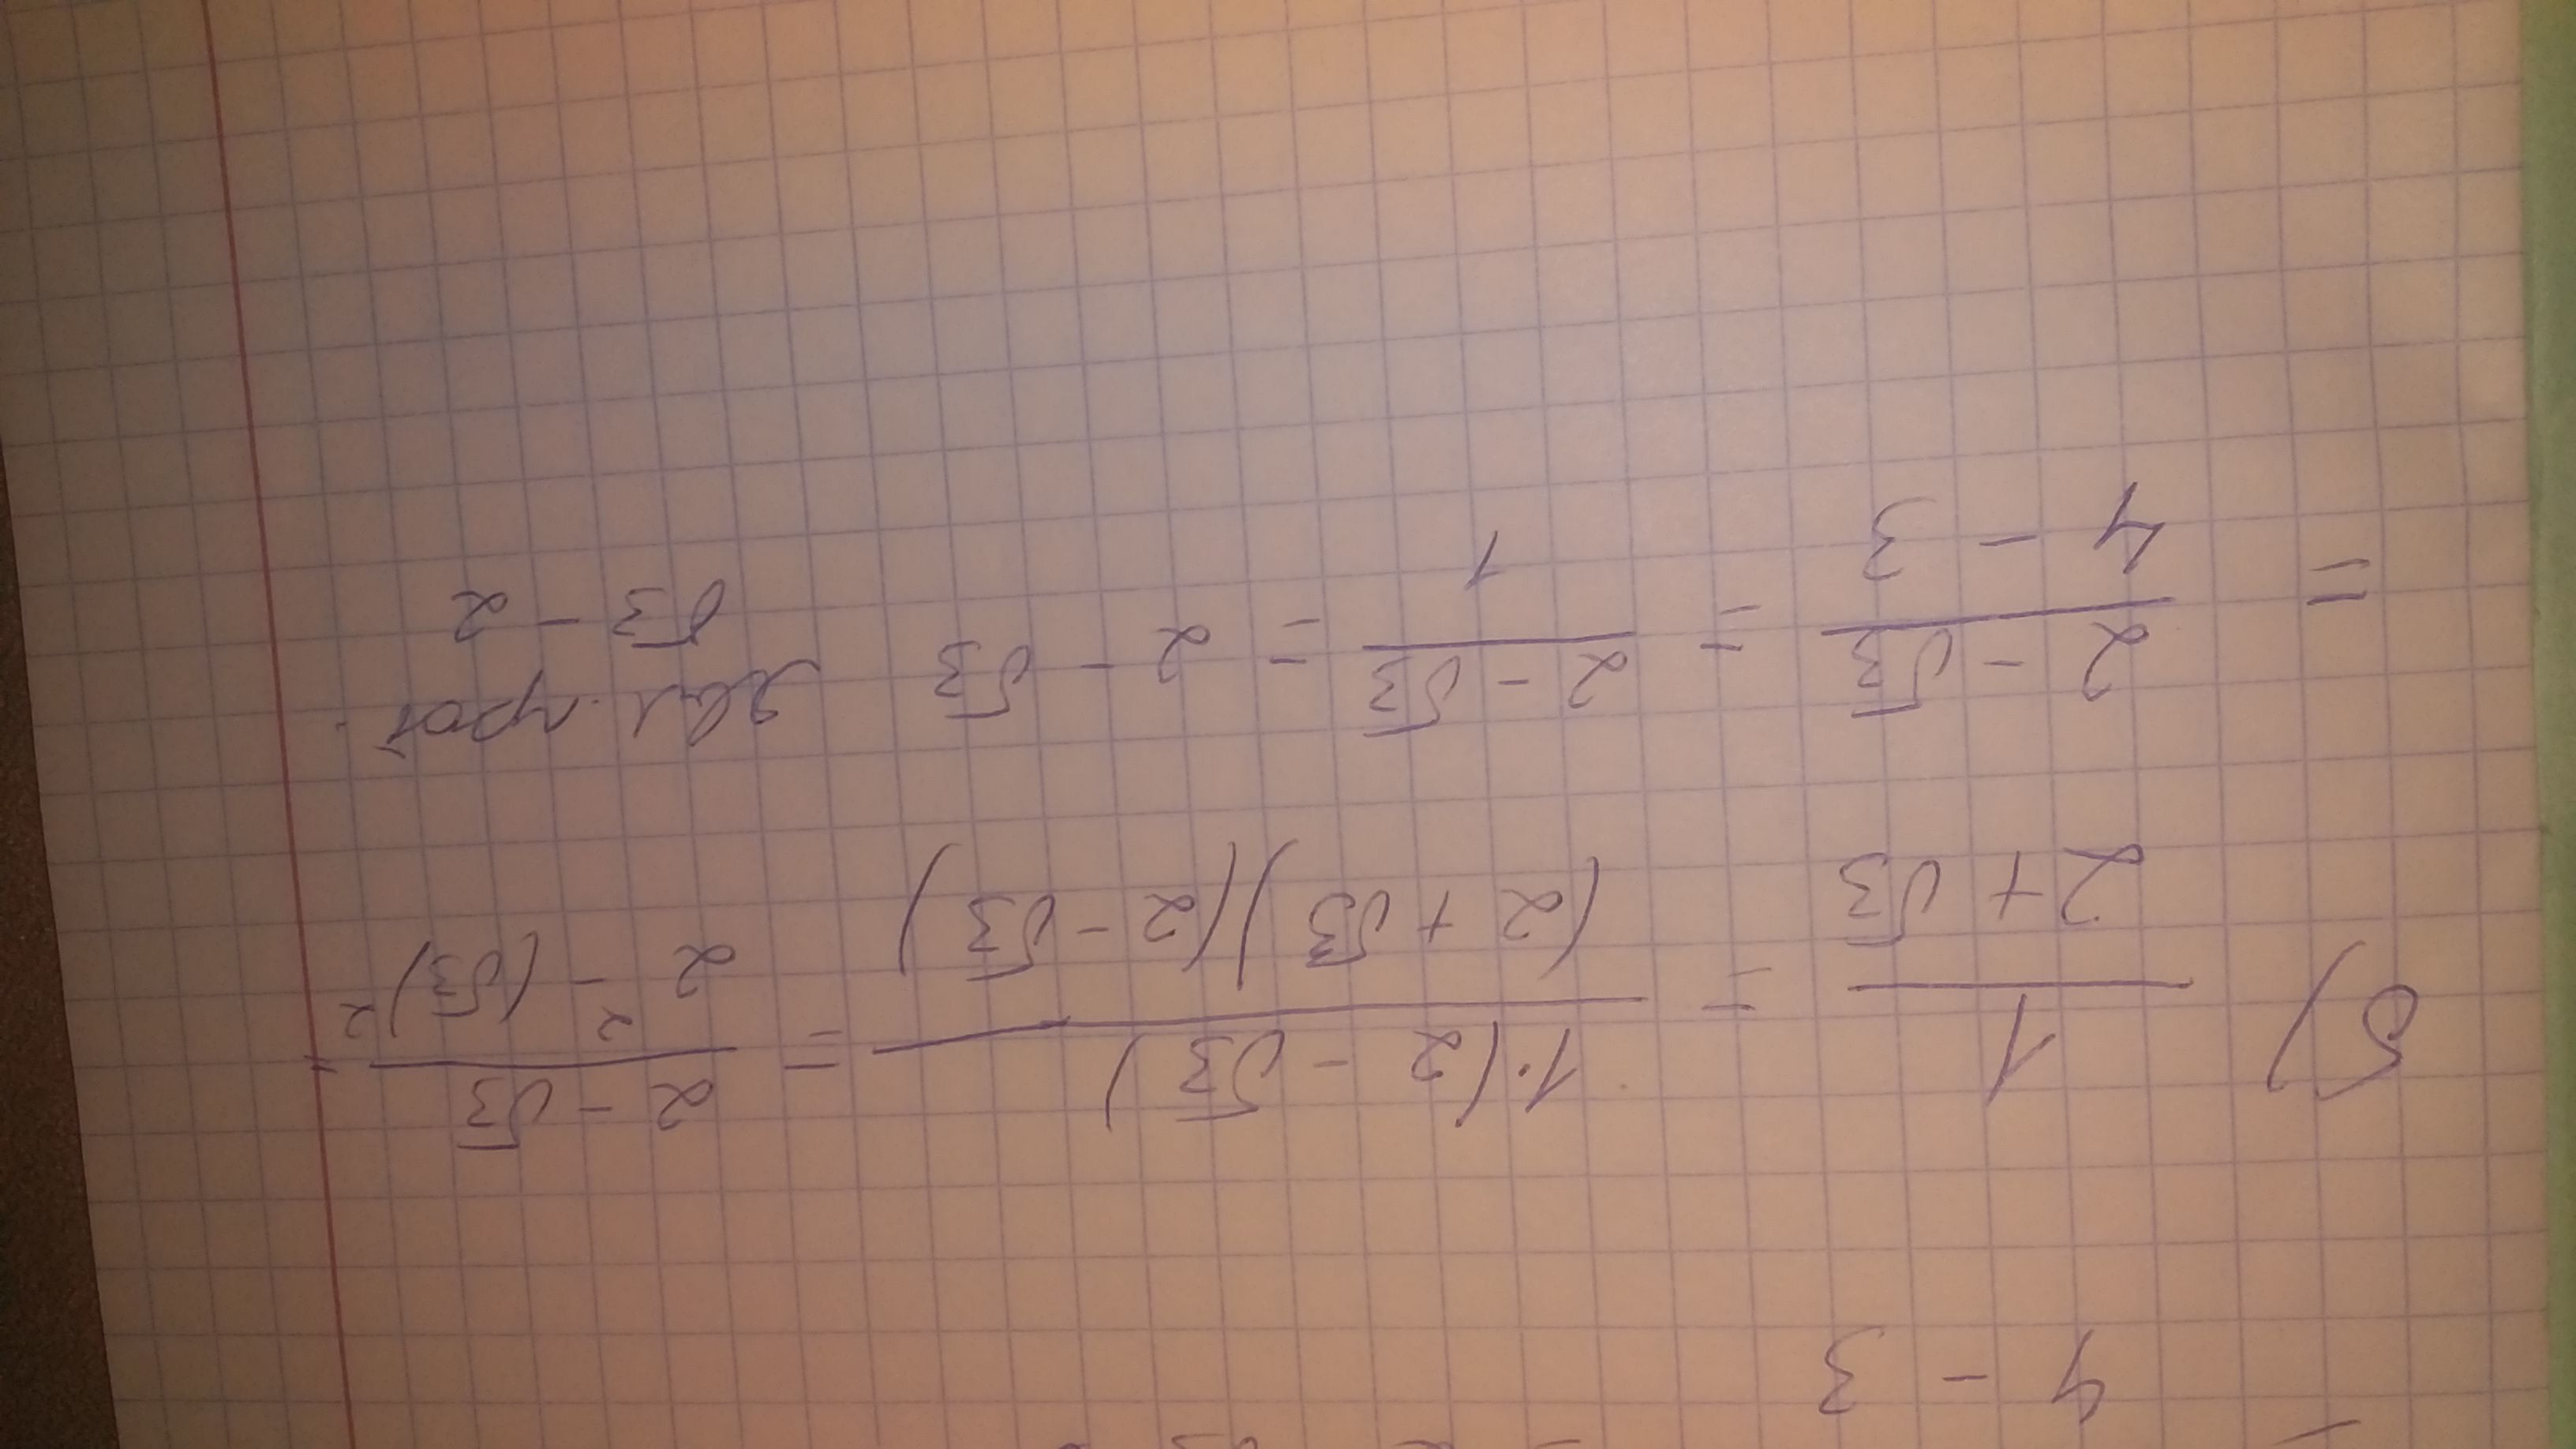 4 - 3
б) 1/(2 + √3) = 1·(2 - √3)/((2 + √3)(2 - √3)) = (2 - √3)/(2² - (√3)²) =
= (2 - √3)/(4 - 3) = (2 - √3)/1 = 2 - √3 явл. прот.
√3 - 2